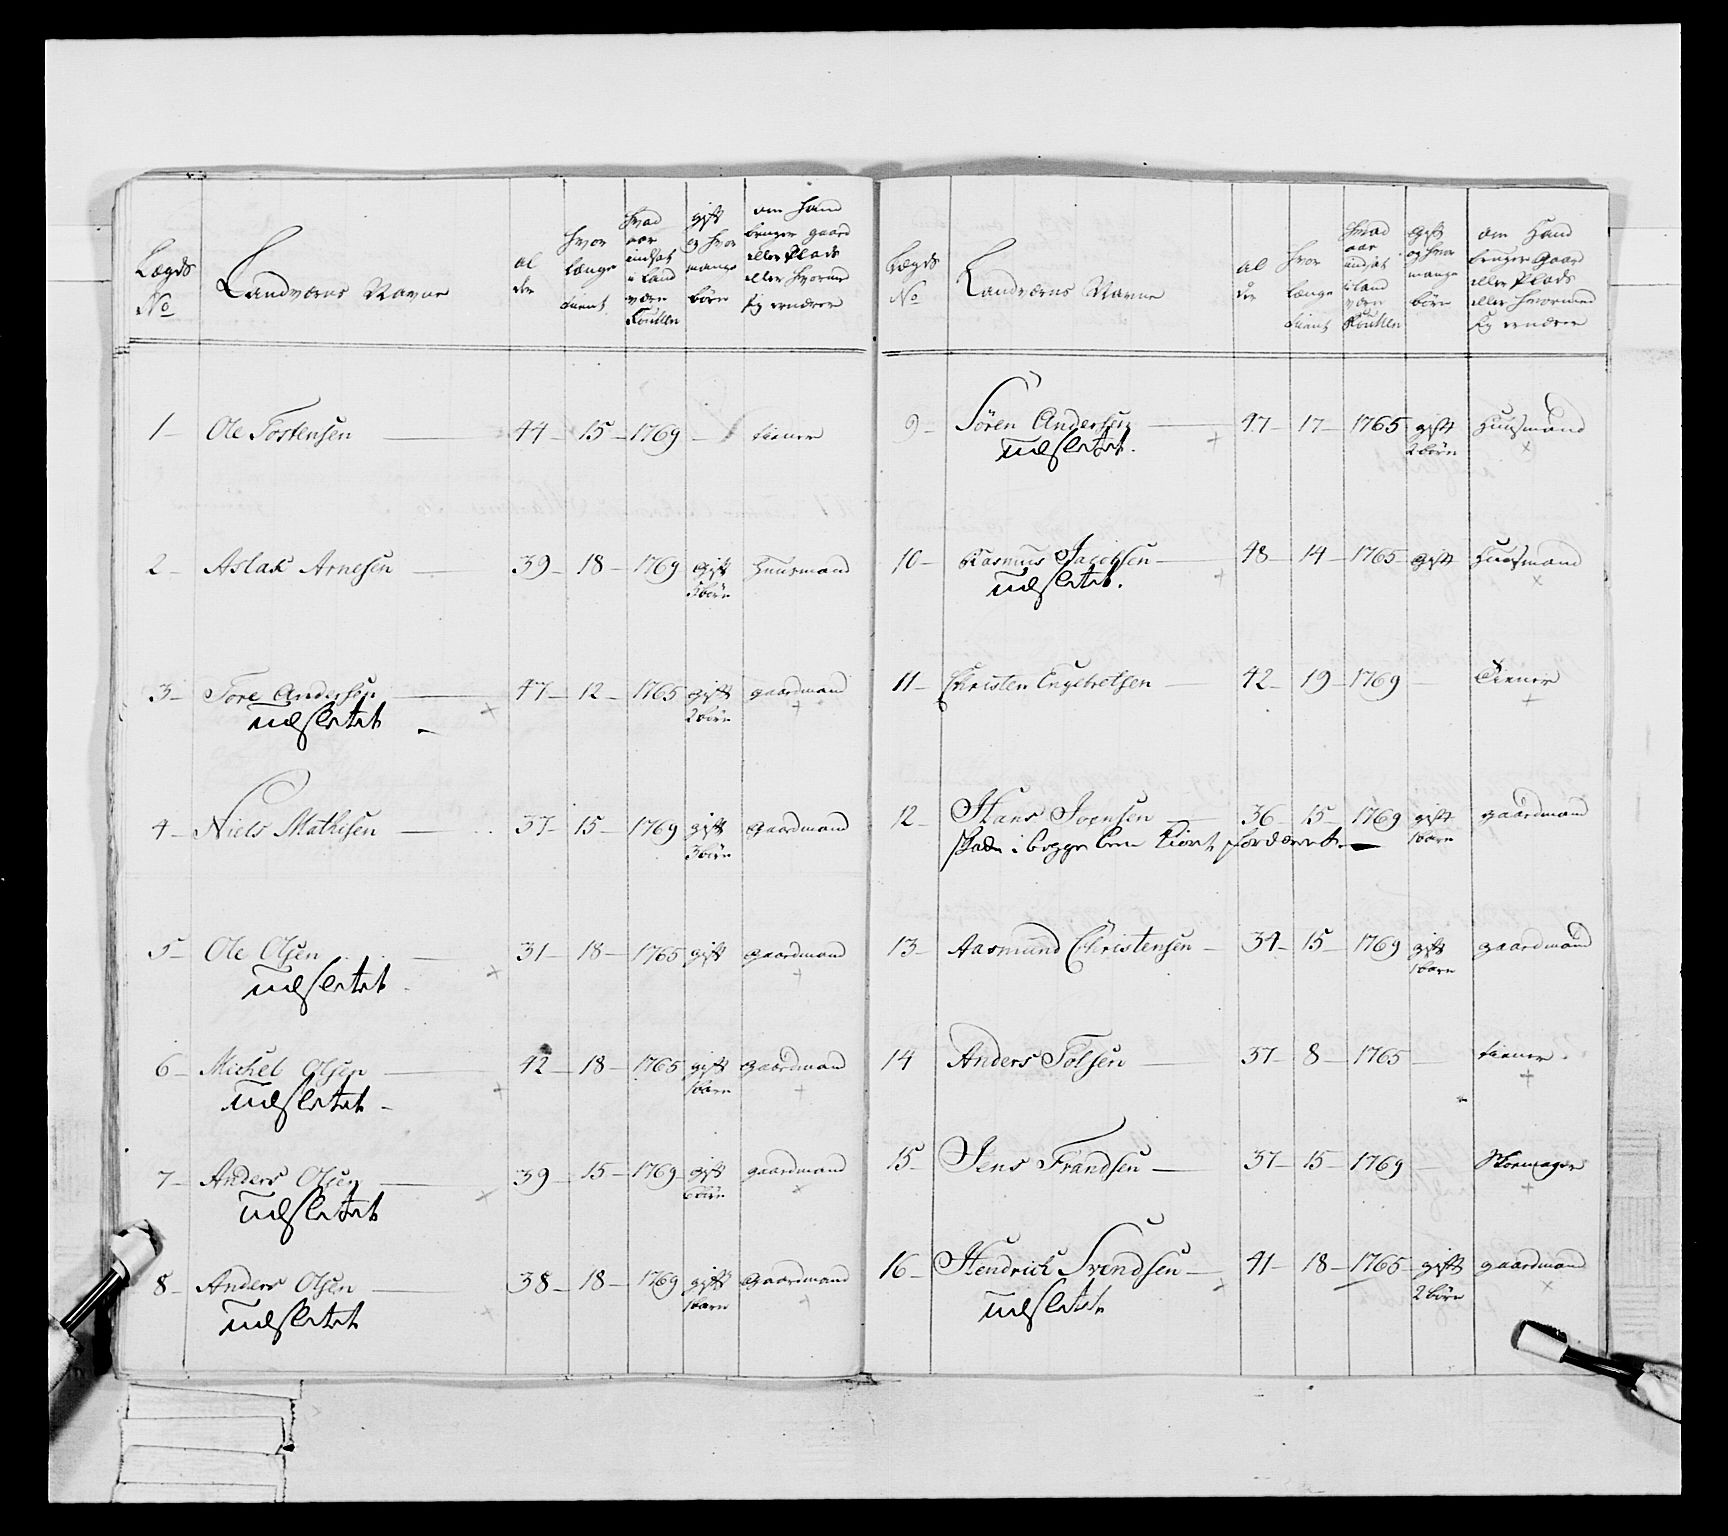 Lægds No | Landværns Navne | al der | hvor længe tient | hvad aar indsat i Land værn Roullen | gift og hvor mange børn | om Hand bruger gaard eller Plads eller hvormed sig ernærer
1 – Ole Torstensen – 44 – 15 – 1769 – – tiener
2 – Aslak Arnesen – 39 – 18 – 1769 gift Huusmand
3 børn
3 – Tore Andersen – 47 – 12 – 1765 gift gaardmand
udslettet + 2 børn +
4 – Niels Mathisen – 37 – 15 – 1769 gift gaardmand
3 børn
5 – Ole Olsen – 31 – 18 – 1765 gift gaardmand
udslettet + +
6 – Michel Olsen – 42 – 18 – 1765 gift gaardmand
udslettet – + 1 barn +
7 – Anders Olsen – 39 – 15 – 1769 gift gaardmand
udslettet + 6 børn +
8 – Anders Olsen – 38 – 18 – 1769 gift gaardmand
udslettet + 1 barn +
Lægds No | Landværns Navne | al der | hvor længe tient | hvad aar indsat i Land værn Roullen | gift og hvor mange børn | om Hand bruger Gaard eller Plads eller hvormed sig ernærer
9 – Sören Andersen – 47 – 17 – 1765 gift Huusmand
udslettet. + 2 børn ×
10 – Rasmus Jacobsen – 48 – 14 – 1765 gift Huusmand
udslettet. + ×
11 – Christen Engebretsen – 42 – 19 – 1769 – Tiener
+
12 – Hans Svensen – 36 – 15 – 1769 gift gaardmand
skade i begge been fordærvet. – 1 barn
13 – Aasmund Christensen – 34 – 15 – 1769 gift gaardmand
1 barn
14 Anders Tolsen – 37 – 8 – 1765 tiener.
+
15 – Jens Frandsen – 37 – 15 – 1769 – Skomager
+
16 – Hendrich Svendsen – 41 – 18 – 1765 – gift gaardmand
udslettet 2 børn ×